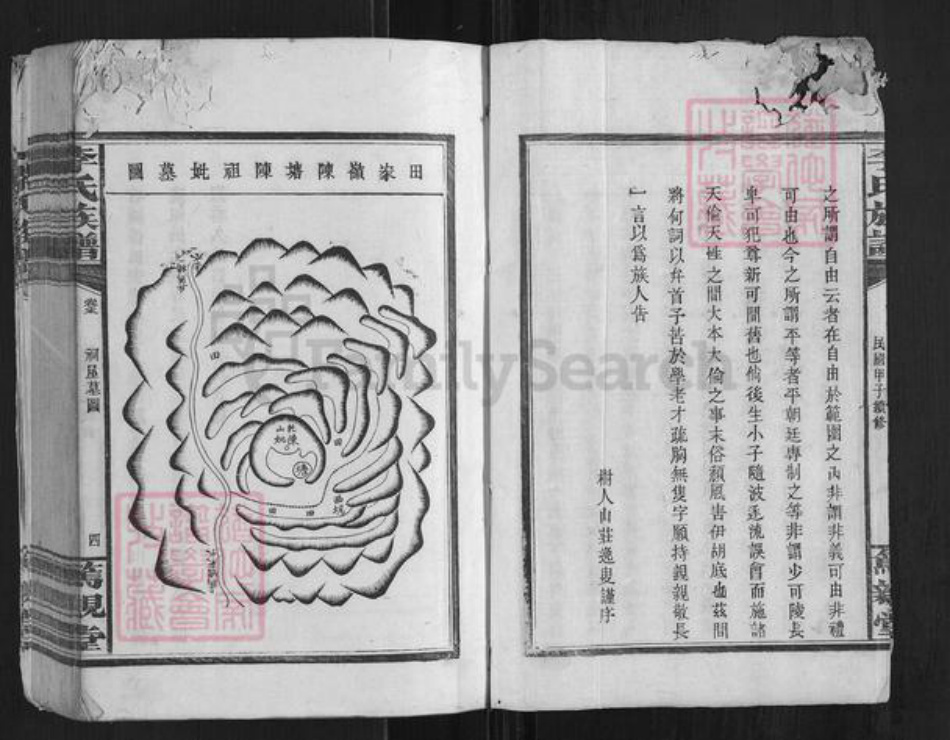 之所謂自由云者在自由於範圍之內非謂非義可由非禮
可由也今之所謂平等者平朝廷專制之等非謂少可陵長
卑可犯尊新可間舊也倘後生小子隨波逐流誤會而施諸
天倫天性之間大本大倫之事末俗頹風害伊胡底也茲間
將何詞以弁首予苦於學老才疏胸無隻字願持親親敬長
一言以爲族人告
樹人山莊逸叟謹序
李氏族譜
民國甲子續修
篤親堂
田家嶺陳塘陳祖妣墓圖
田
乾山
陳妣
塘
田
田
田
李氏族譜
祠屋墓圖
四
篤親堂
FamilySearch